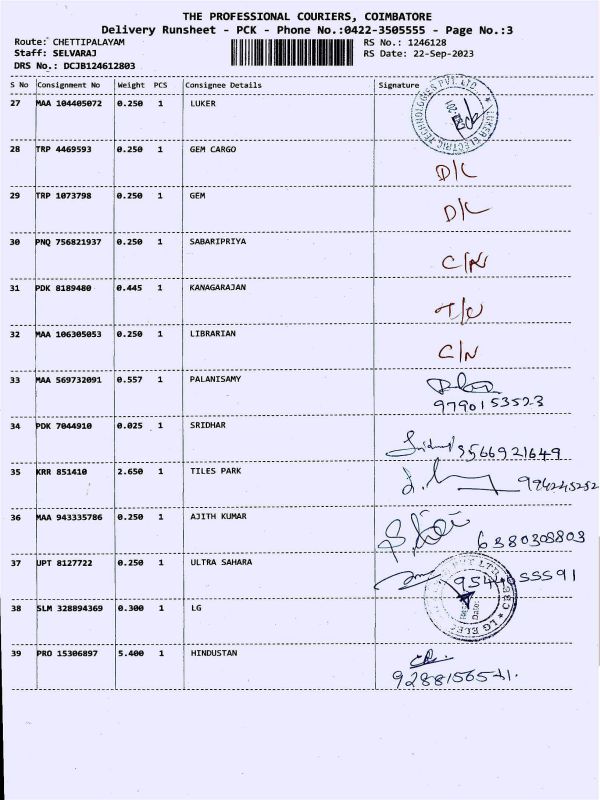 THE PROFESSIONAL COURIERS, COIMBATORE
Delivery Runsheet - PCK - Phone No.:0422-3505555 - Page No.:3
Route: CHETTIPALAYAM RS No.: 1246128
Staff: SELVARAJ RS Date: 22-Sep-2023
DRS No.: DCJB124612803
S No Consignment No Weight PCS Consignee Details Signature
27 MAA 104405072 0.250 1 LUKER
LUKER ELECTRIC TECHNOLOGIES PVT. LTD.
28 TRP 4469593 0.250 1 GEM CARGO
D/L
29 TRP 1073798 0.250 1 GEM
D/L
30 PNQ 756821937 0.250 1 SABARIPRIYA
C/N
31 PDK 8189480 0.445 1 KANAGARAJAN
32 MAA 106305053 0.250 1 LIBRARIAN
C/N
33 MAA 569732091 0.557 1 PALANISAMY
9790153523
34 PDK 7044910 0.025 1 SRIDHAR
9566921649
35 KRR 851410 2.650 1 TILES PARK
36 MAA 943335786 0.250 1 AJITH KUMAR
6380308803
37 UPT 8127722 0.250 1 ULTRA SAHARA
38 SLM 328894369 0.300 1 LG
39 PRO 15306897 5.400 1 HINDUSTAN